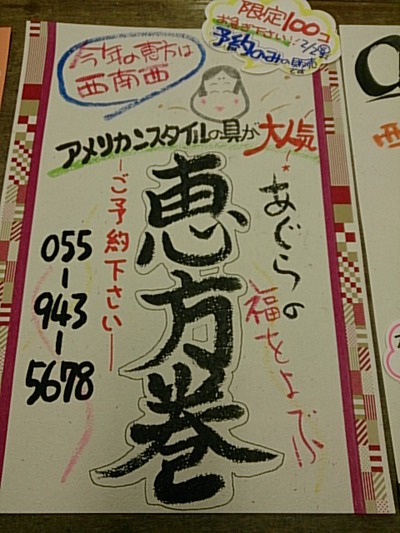 限定100コ
お急ぎ下さい!!2/2(金)
予約のみの販売
です
今年の恵方は
西南西
アメリカンスタイルの具が大人気!
恵方巻
あぐらの
福をよぶ
ーご予約下さいー
055-943-5678